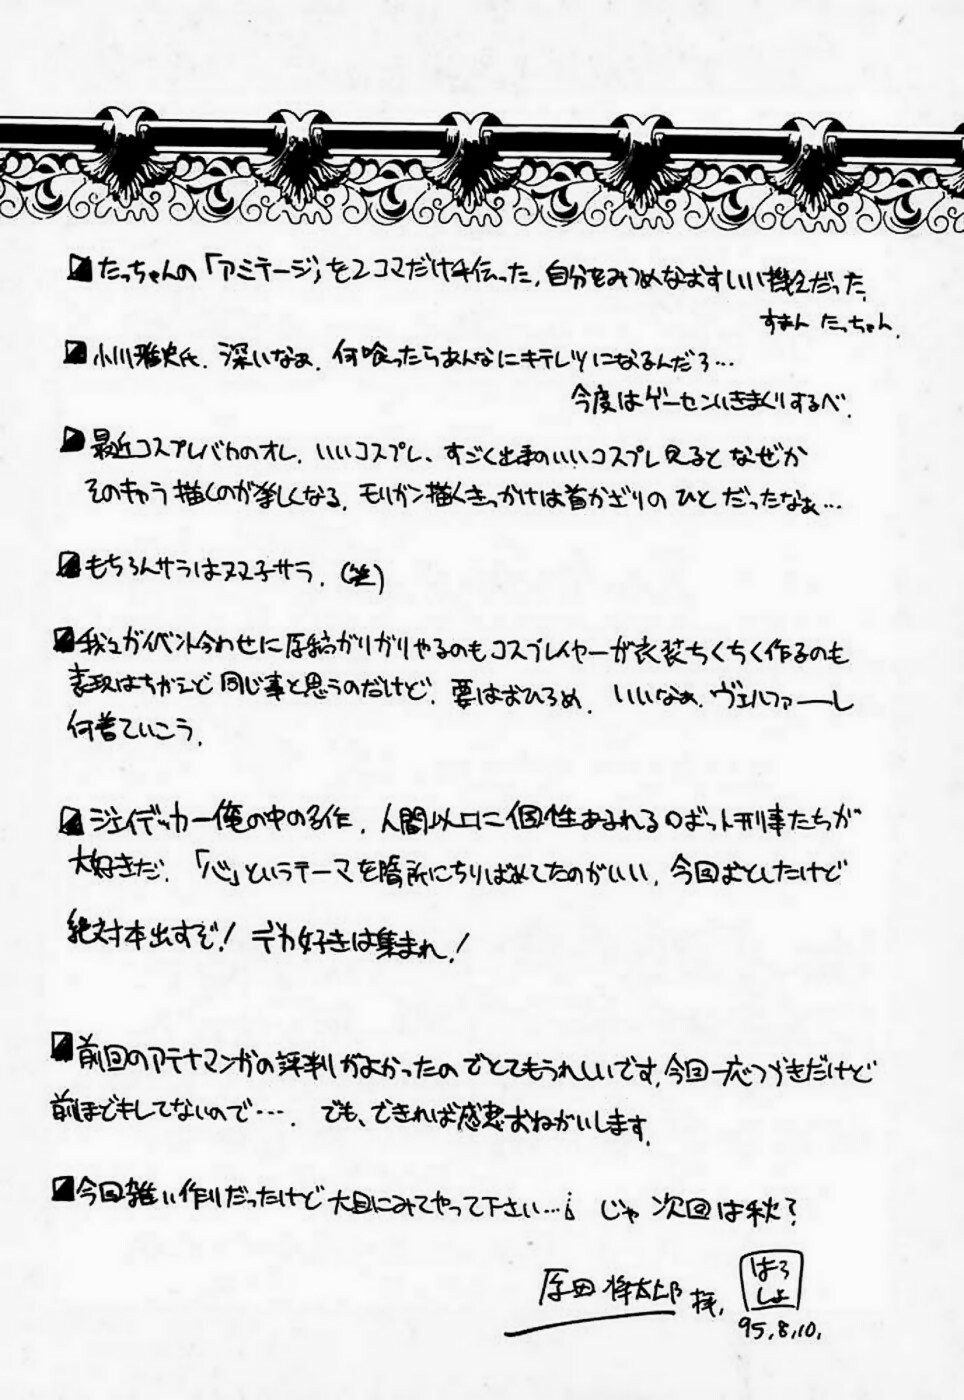 たっちゃんの「アミテージ」を2コマだけ手伝った。自分をみつめなおすいい機会だった。
すまん たっちゃん。
小川雅史氏。深いなぁ。何喰ったらあんなにキテレツになるんだろ…
今度はゲーセンいきまくりするべ。
最近コスプレバカのオレ。いいコスプレ、すごく出来のいいコスプレ見るとなぜか
そのキャラ描くのが楽しくなる。モリガン描くきっかけは首かざりのひとだったなぁ…
もちろんサラはヌマ子サラ。(笑)
我々がイベント合わせに原稿がりがりやるのもコスプレイヤーが衣装ちくちく作るのも
表現はちがえど同じ事と思うのだけど。要はおひろめ。いいなぁ。ヴェルファーレ
何着ていこう。
ジェイデッカー俺の中の名作。人間以上に個性あふれるロボット刑事たちが
大好きだ。「心」というテーマを随所にちりばめてたのがいい。今回おとしたけど
絶対本出すぞ!デカ好きは集まれ!
前回のアテナマンガの評判がよかったのでとてもうれしいです。今回一応つづきだけど
前ほどキしてないので…。でも、できれば感想おねがいします。
今回雑い作りだったけど大目にみてやって下さい…。じゃ次回は秋?
原田将太郎 拝。
はろ
しょ
95.8.10.